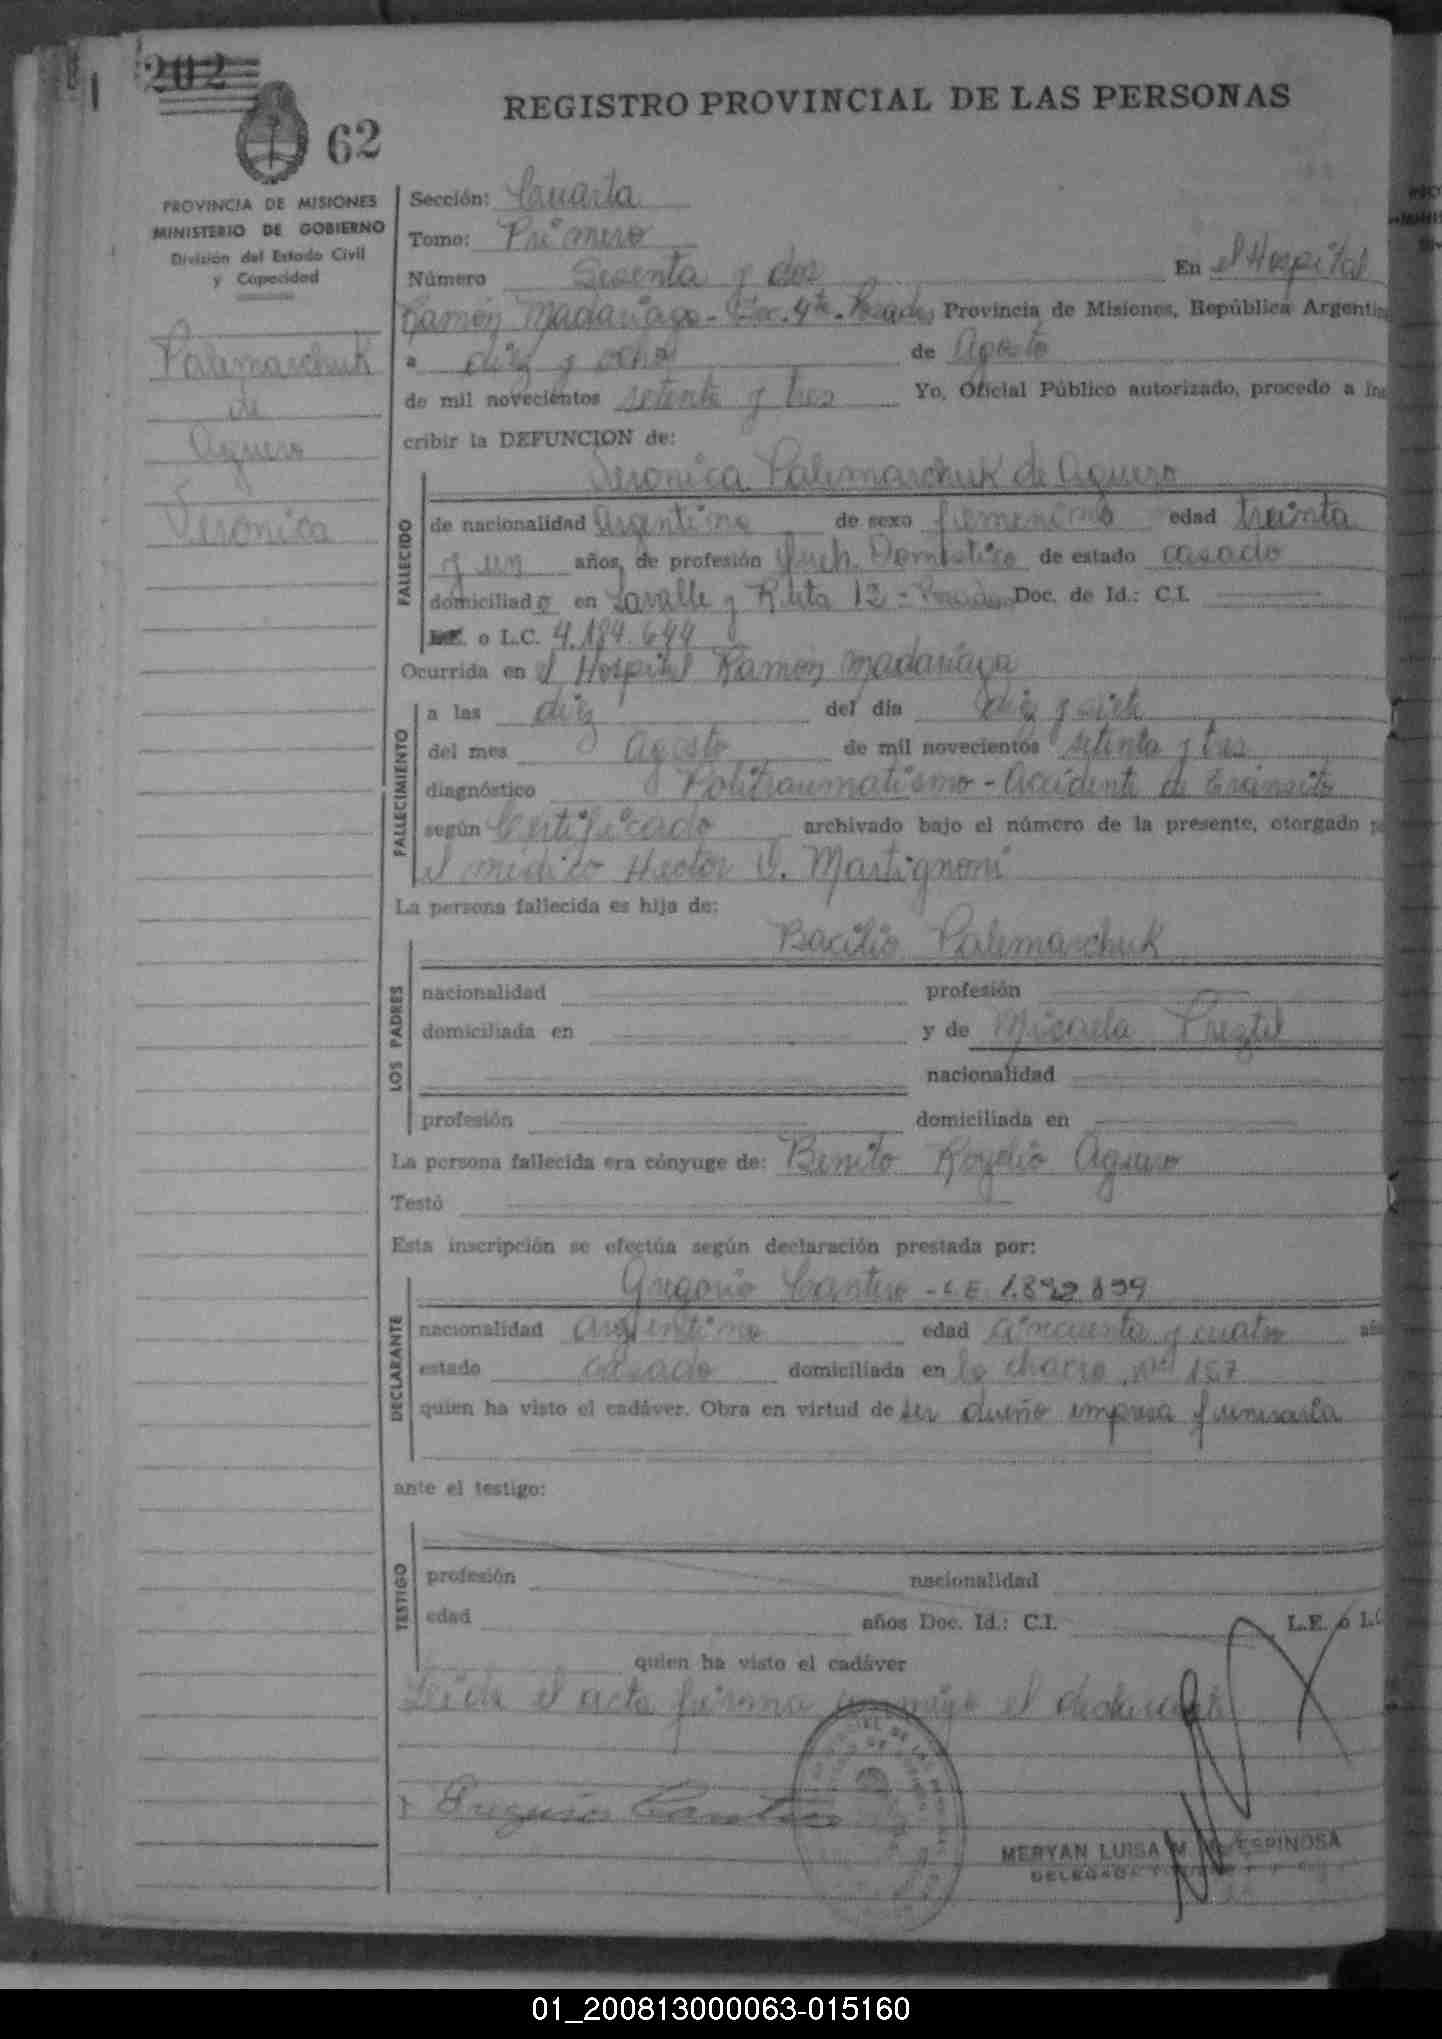 202
62
REGISTRO PROVINCIAL DE LAS PERSONAS
PROVINCIA DE MISIONES
MINISTERIO DE GOBIERNO
División del Estado Civil
y Capacidad
Palemarchuk
de
Aguero
Veronica
Sección: Cuarta
Tomo: Primero
Número Sesenta y dos En el Hospital
Ramón Madariaga - Sec. 4ta. Posadas Provincia de Misiones, República Argentina
a diez y ocho de Agosto
de mil novecientos setenta y tres Yo, Oficial Público autorizado, procedo a ins
cribir la DEFUNCION de:
Veronica Palemarchuk de Aguero
FALLECIDO
de nacionalidad Argentina de sexo femenino edad treinta
y un años, de profesión Queh. Domestico de estado casado
domiciliada en Lavalle y Ruta 12 - Posadas Doc. de Id.: C.I.
o L.C. 4.184.644
Ocurrida en el Hospital Ramón Madariaga
FALLECIMIENTO
a las diez del día diez y siete
del mes Agosto de mil novecientos setenta y tres
diagnóstico Politraumatismo - Accidente de tránsito
según Certificado archivado bajo el número de la presente, otorgado p
el médico Hector V. Martignoni
La persona fallecida es hija de:
Bacilio Palemarchuk
LOS PADRES
nacionalidad profesión
domiciliada en y de Micaela
nacionalidad
profesión domiciliada en
La persona fallecida era cónyuge de: Benito Rogelio Aguero
Testó
Esta inscripción se efectúa según declaración prestada por:
Gregorio Cantero - L.E. 1.892.899
DECLARANTE
nacionalidad argentino edad cincuenta y cuatro añ
estado casado domiciliada en la chacra nº 157
quien ha visto el cadáver. Obra en virtud de ser dueño empresa funeraria
ante el testigo:
TESTIGO
profesión nacionalidad
edad años Doc. Id.: C.I. L.E. ó L.C
quien ha visto el cadáver
Leida el acta firma conmigo el declarante
Gregorio Cantero
MERYAN LUISA M. ESPINOSA
DELEGADA
01_200813000063-015160